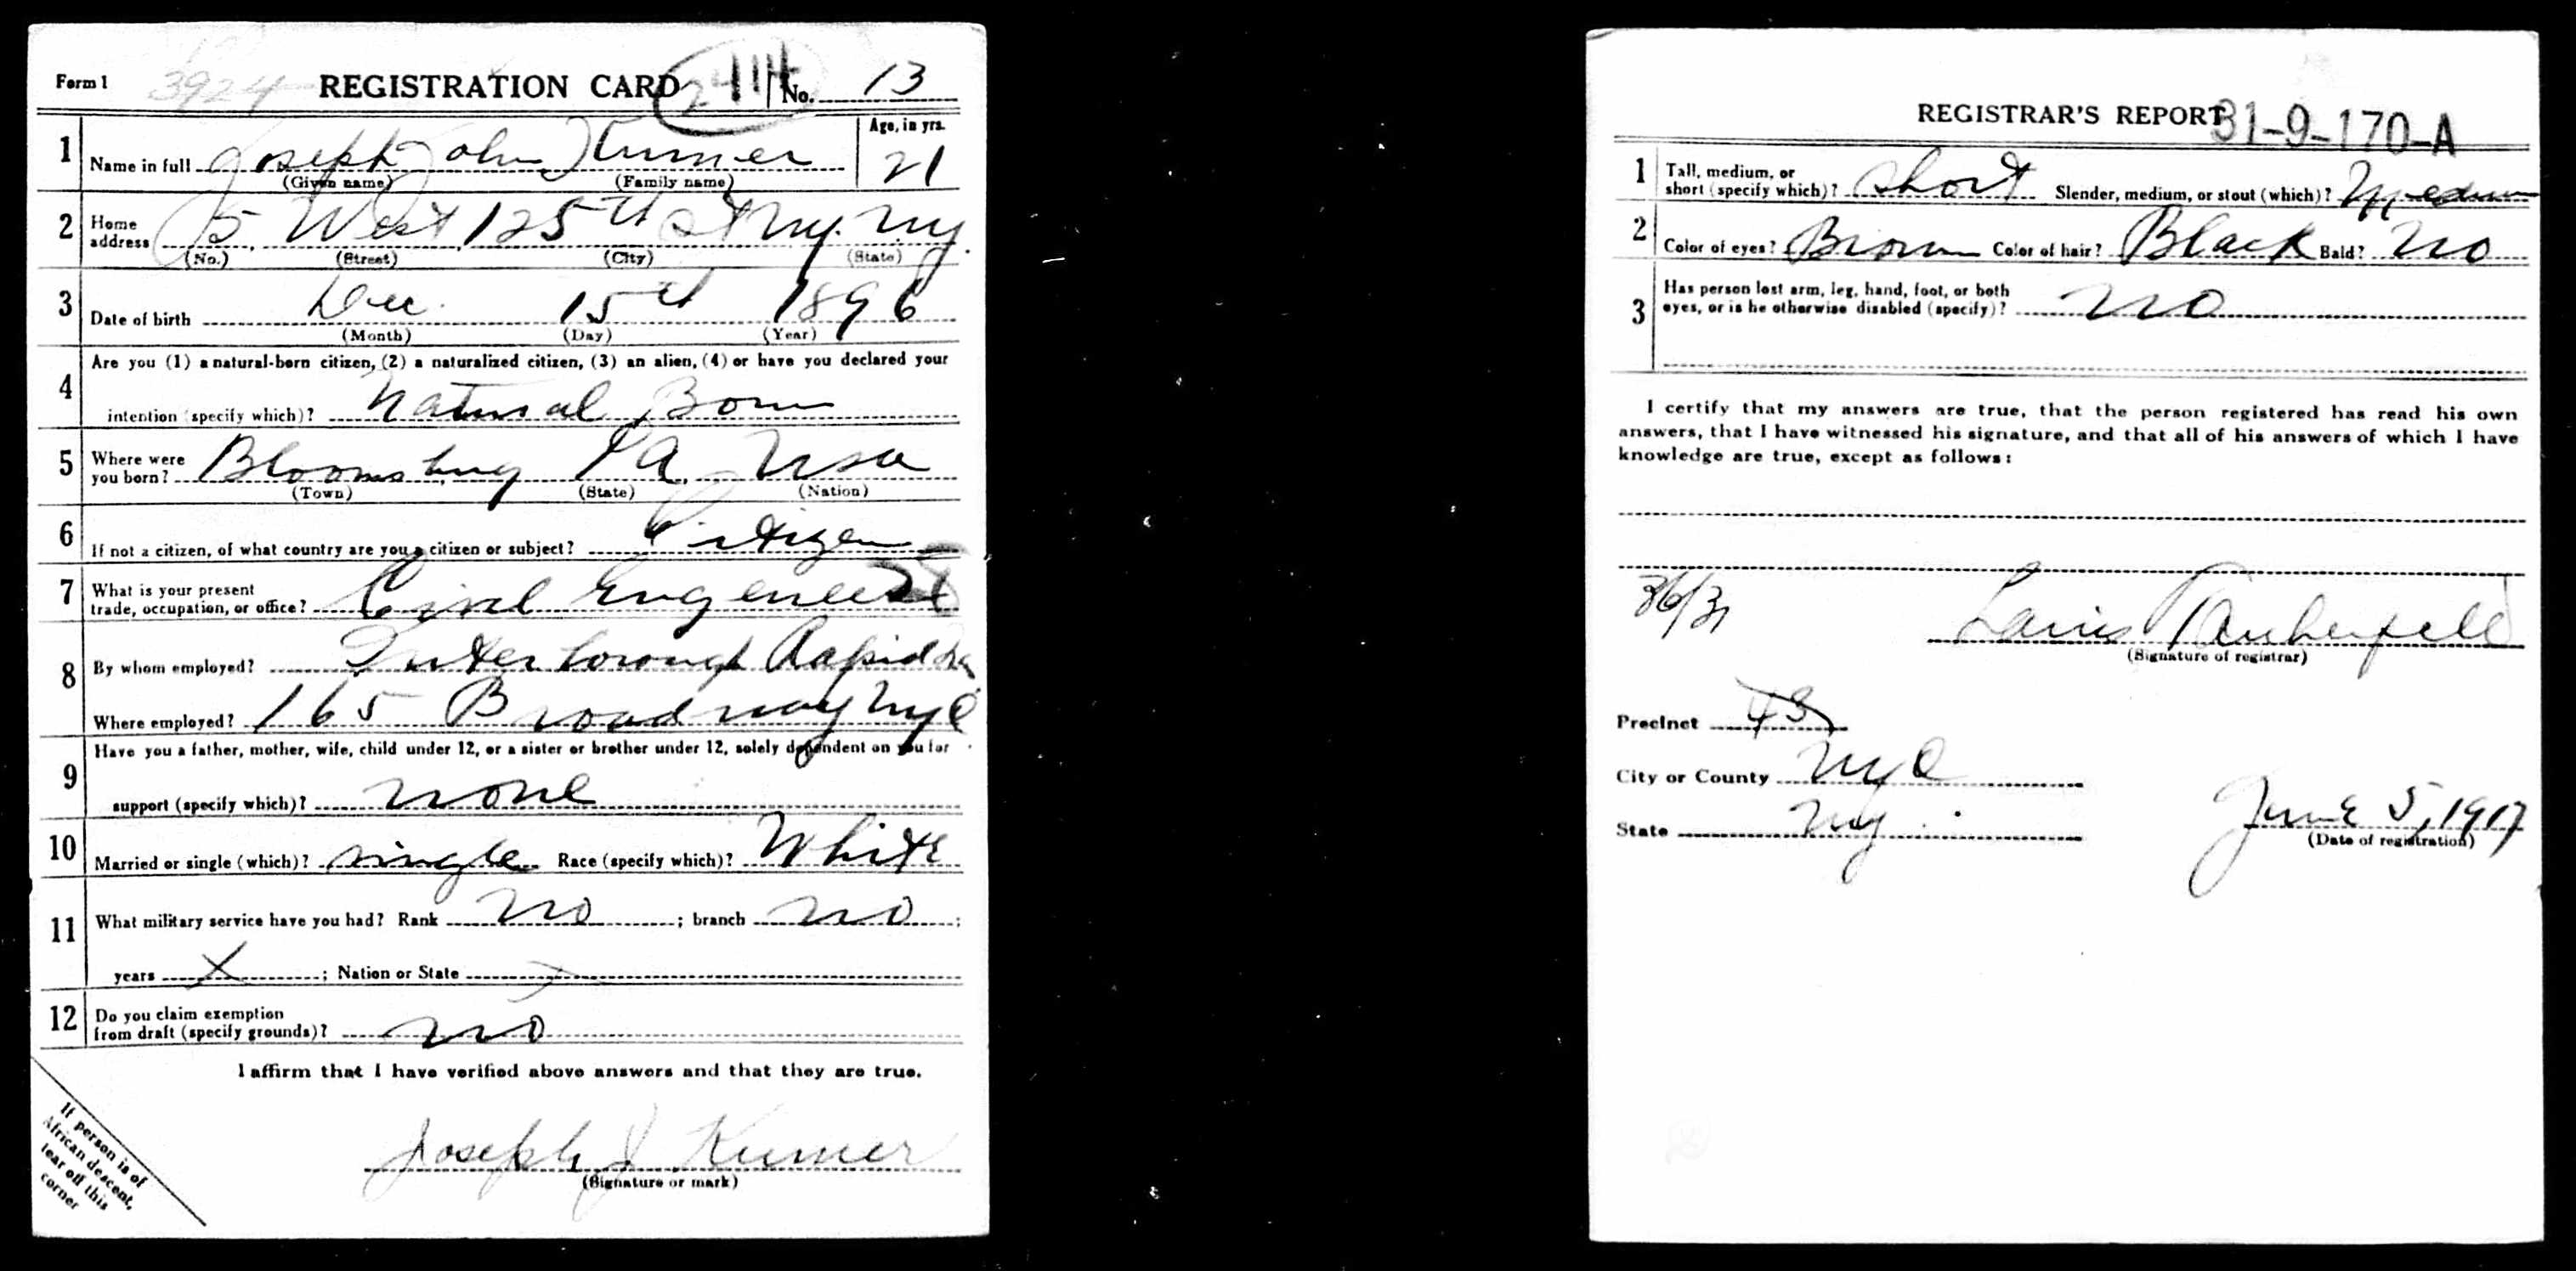 Form 1 3924 REGISTRATION CARD No. 13
1 Name in full Joseph John Kumer Age, in yrs. 21
(Given name) (Family name)
2 Home address 5 West 125th St NY. NY.
(No.) (Street) (City) (State)
3 Date of birth Dec. 15th 1896
(Month) (Day) (Year)
4 Are you (1) a natural-born citizen, (2) a naturalized citizen, (3) an alien, (4) or have you declared your
intention (specify which)? Natural Born
5 Where were you born? Bloomsburg PA. USA
(Town) (State) (Nation)
6 If not a citizen, of what country are you a citizen or subject? Citizen
7 What is your present
trade, occupation, or office? Civil Engeneer
8 By whom employed? Interborough Rapid
Where employed? 165 Broadway NYC
9 Have you a father, mother, wife, child under 12, or a sister or brother under 12, solely dependent on you for
support (specify which)? none
10 Married or single (which)? single Race (specify which)? White
11 What military service have you had? Rank no ; branch no ;
years X ; Nation or State
12 Do you claim exemption
from draft (specify grounds)? no
I affirm that I have verified above answers and that they are true.
Joseph J Kumer
(Signature or mark)
If person is of
African descent,
tear off this
corner
REGISTRAR'S REPORT 31-9-170-A
1 Tall, medium, or
short (specify which)? Short Slender, medium, or stout (which)? Medium
2 Color of eyes? Brown Color of hair? Black Bald? no
3 Has person lost arm, leg, hand, foot, or both
eyes, or is he otherwise disabled (specify)? no
I certify that my answers are true, that the person registered has read his own
answers, that I have witnessed his signature, and that all of his answers of which I have
knowledge are true, except as follows:
(Signature of registrar)
Precinct
City or County NYC
State NY.
June 5, 1917
(Date of registration)